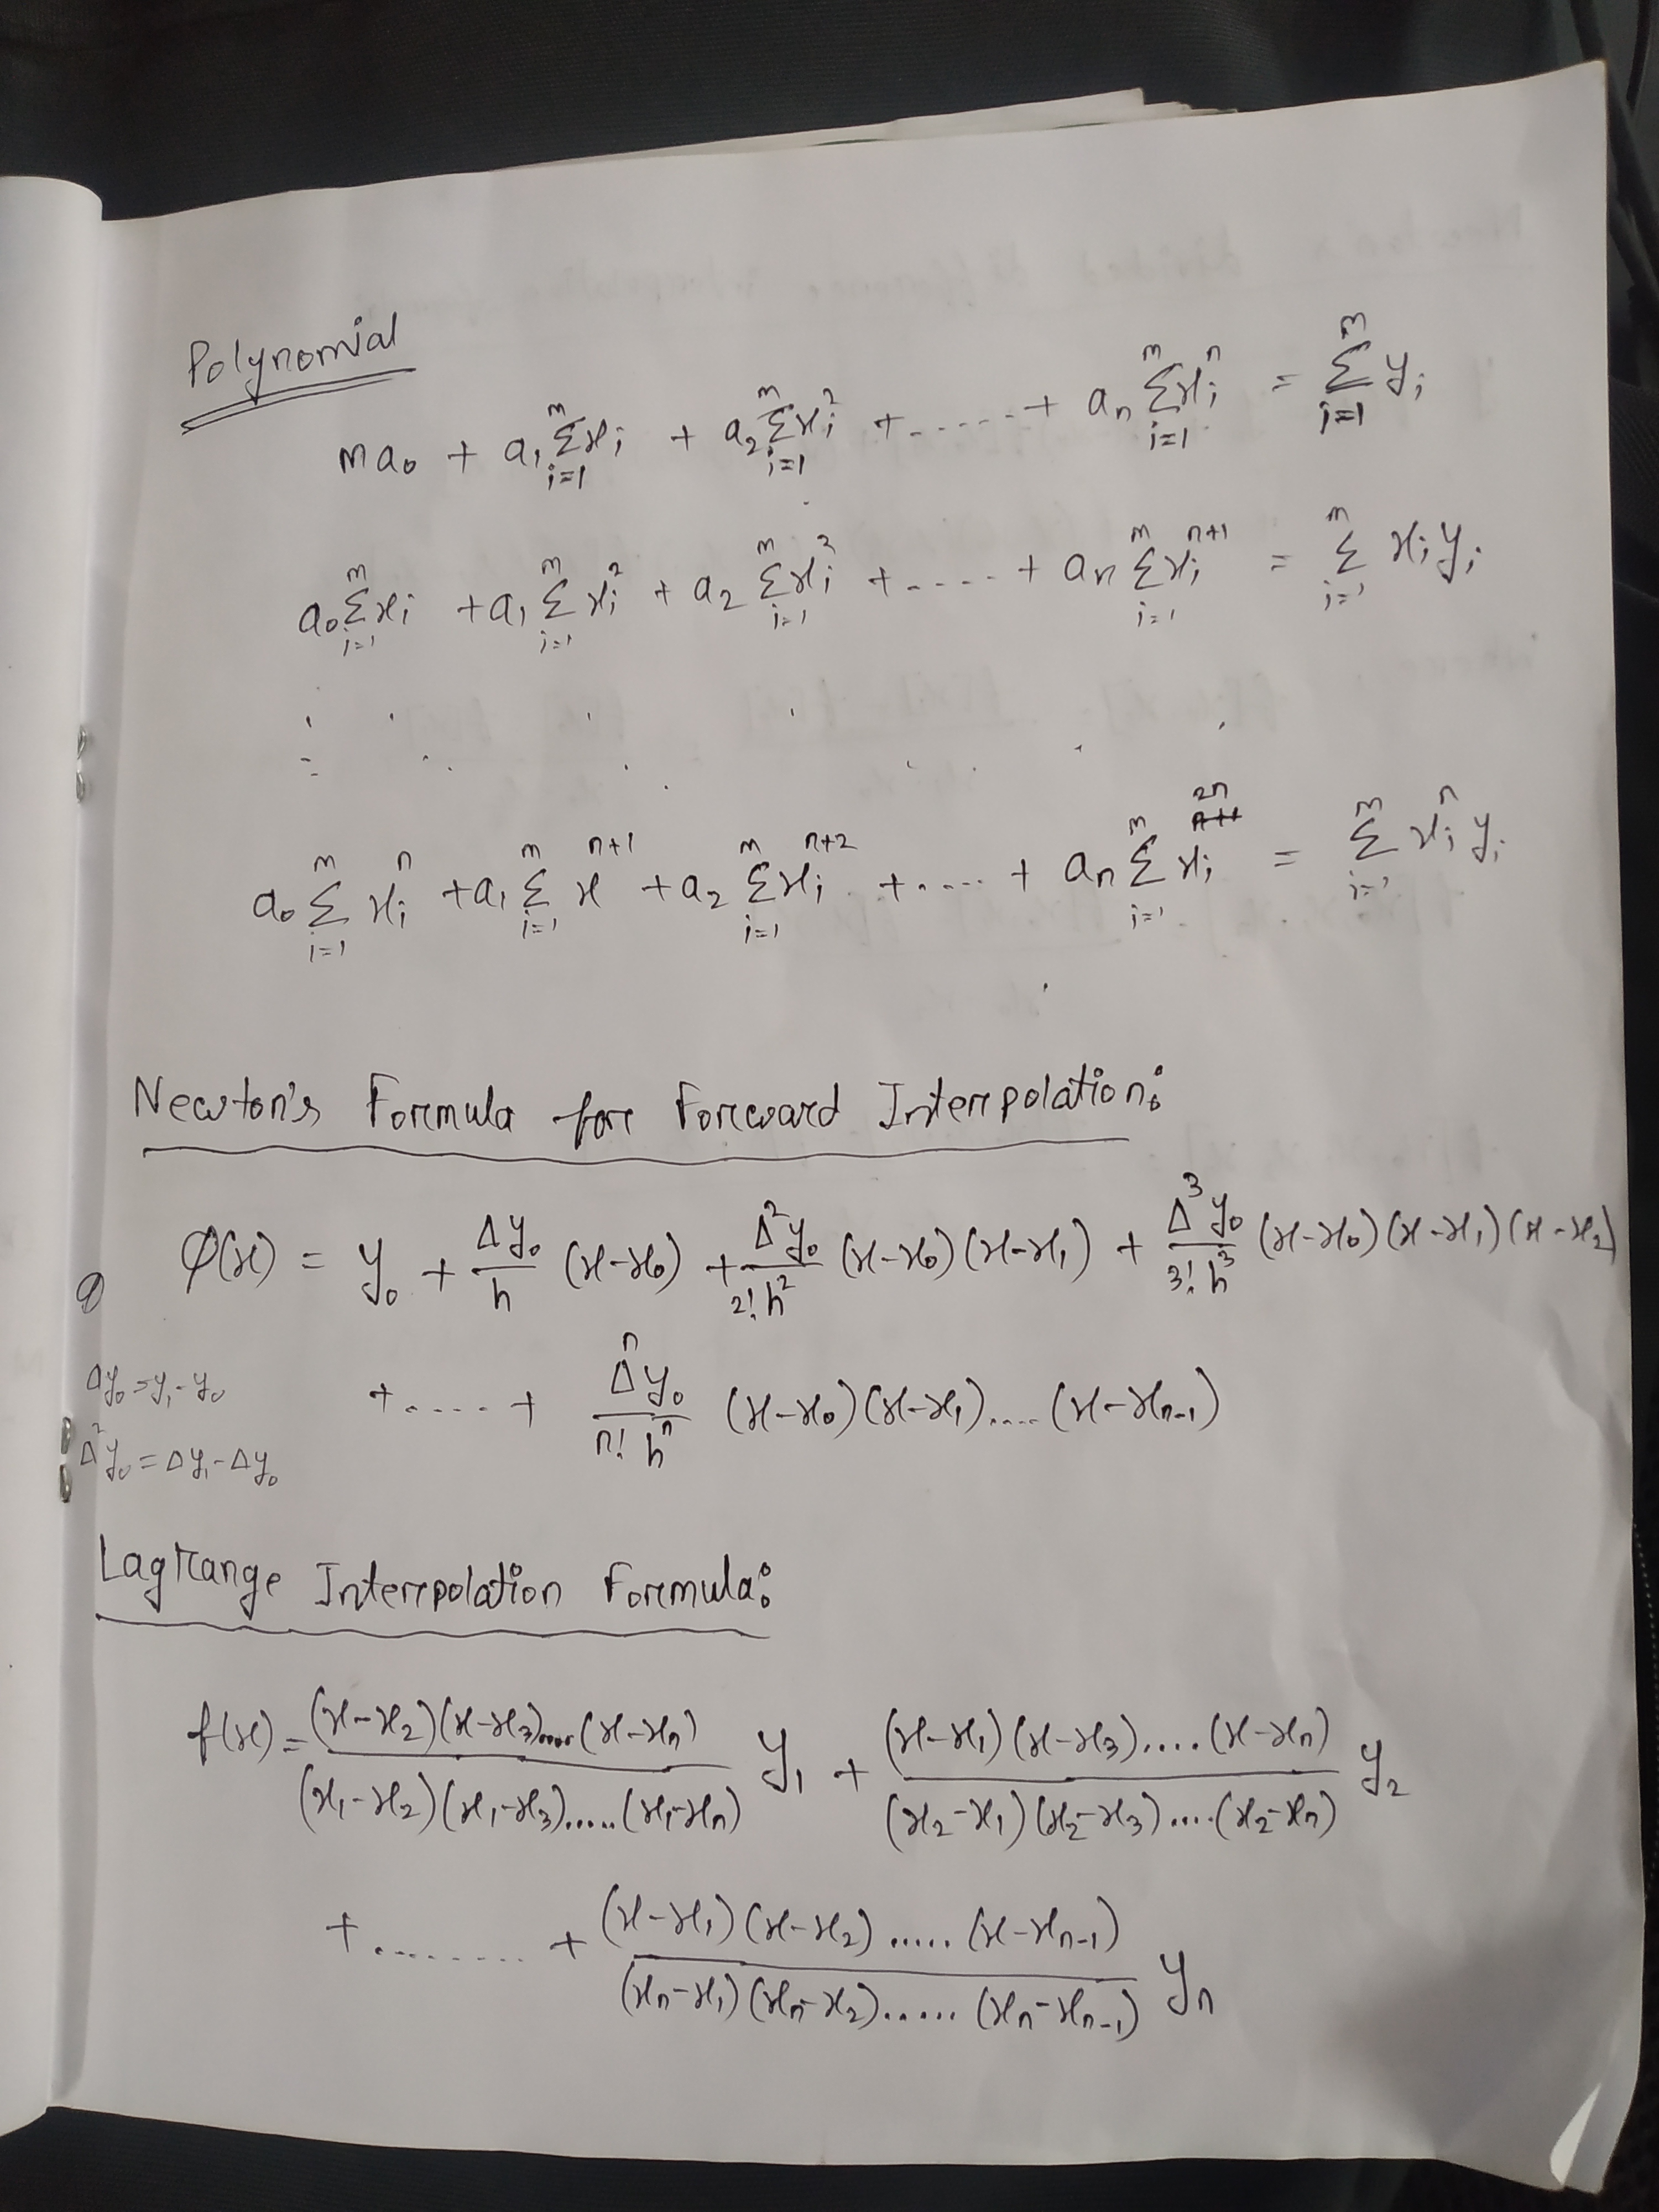 Polynomial
ma₀ + a₁ Σᵢ₌₁ᵐ xᵢ + a₂ Σᵢ₌₁ᵐ xᵢ² + ...... + aₙ Σᵢ₌₁ᵐ xᵢⁿ = Σᵢ₌₁ᵐ yᵢ
a₀ Σᵢ₌₁ᵐ xᵢ + a₁ Σᵢ₌₁ᵐ xᵢ² + a₂ Σᵢ₌₁ᵐ xᵢ² + ..... + aₙ Σᵢ₌₁ᵐ xᵢⁿ⁺¹ = Σᵢ₌₁ᵐ xᵢyᵢ
a₀ Σᵢ₌₁ᵐ xᵢⁿ + a₁ Σᵢ₌₁ᵐ xⁿ⁺¹ + a₂ Σᵢ₌₁ᵐ xᵢⁿ⁺² + ..... + aₙ Σᵢ₌₁ᵐ xᵢ²ⁿ = Σᵢ₌₁ᵐ xᵢⁿ yᵢ
Newton's Formula for Forward Interpolation:
φ(x) = y₀ + Δy₀/h (x-x₀) + Δ²y₀/2!h² (x-x₀)(x-x₁) + Δ³y₀/3!h³ (x-x₀)(x-x₁)(x-x₂)
+ ..... + Δⁿy₀/n!hⁿ (x-x₀)(x-x₁)....(x-xₙ₋₁)
Δy₀ = y₁ - y₀
Δ²y₀ = Δy₁ - Δy₀
Lagrange Interpolation Formula:
f(x) = (x-x₂)(x-x₃)....(x-xₙ)/(x₁-x₂)(x₁-x₃).....(x₁-xₙ) y₁ + (x-x₁)(x-x₃)....(x-xₙ)/(x₂-x₁)(x₂-x₃)....(x₂-xₙ) y₂
+ ......... + (x-x₁)(x-x₂).....(x-xₙ₋₁)/(xₙ-x₁)(xₙ-x₂)......(xₙ-xₙ₋₁) yₙ